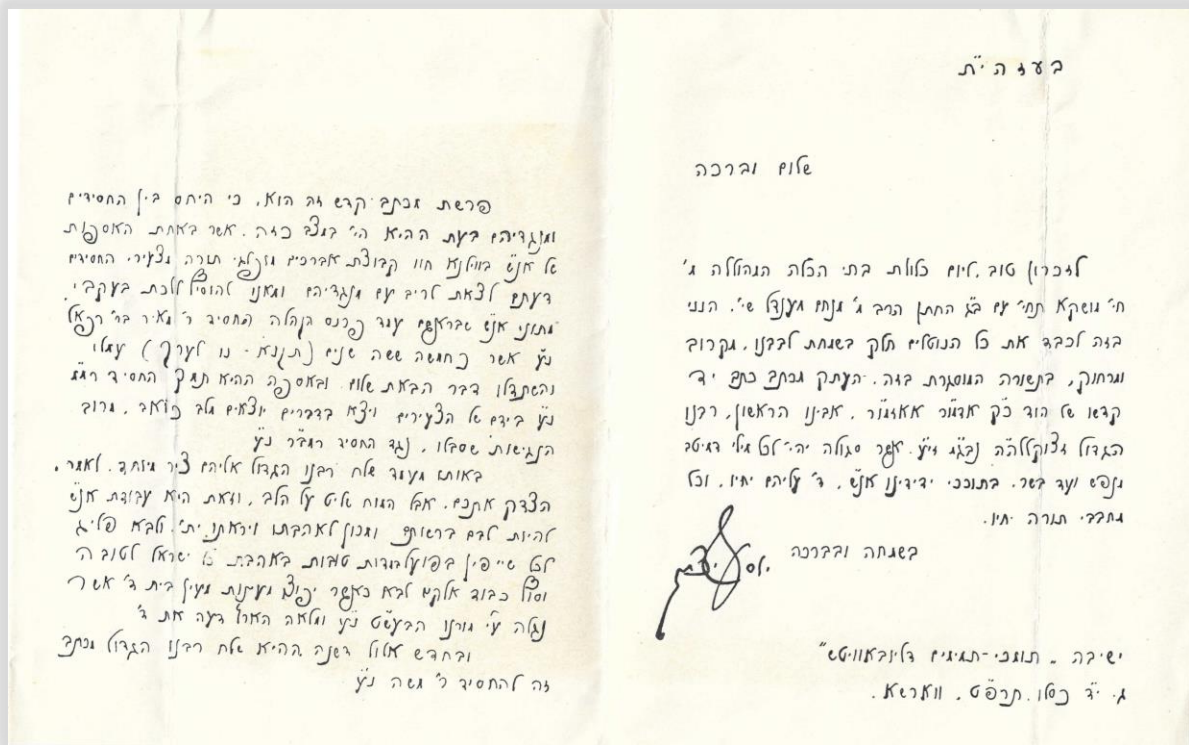 בעזה״ת
שלום וברכה
לזכרון טוב, ליום כלולת בתי הכלה המהוללה מ׳
חי׳ מושקא תחי׳ עם ב״ג החתן הרב מ׳ מנחם מענדל שי׳, הנני
בזה לכבד את כל הנוטלים חלק בשמחת לבבנו, מקרוב
ומרחוק, בתשורה המוסגרת בזה, העתק מכתב כתב יד
קדשו של הוד כ״ק אדמו״ר אאזמו״ר, אבינו הראשון, רבנו
הגדול זצוקללה״ה נבג״מ זי״ע, אשר סגולה יהי׳ לכל מילי דמיטב
מנפש ועד בשר, בתוככי ידידינו אנ״ש, ד׳ עליהם יחיו, וכל
מחבבי תורה יחיו.
בשמחה ובברכה
יוסף יצחק
ישיבה ״תומכי-תמימים דליובאוויטש״
ג׳ י״ד כסלו, תרפ״ט, ווארשא.
פרשת מכתב קדש זה הוא, כי היחס בין החסידים
ומנגדיהם בעת ההיא הי׳ במצב כזה, אשר באחת האספות
של אנ״ש בווילנא חוו קבוצת אברכים מופלגי תורה מצעירי החסידים
דעתם לצאת לריב עם מנגדיהם ומאנו להוסיף ללכת בעקבי
מתוני אנ״ש שבראשם עמד פרנס הקהלה החסיד ר׳ מאיר בר׳ רפאל
נ״ע אשר כחמשה ששה שנים (תקנא - נו לערך) עמלו
והשתדלו דבר הבאת שלום, ובאספה ההיא תמך החסיד רמ״מ
נ״ע בידם של הצעירים ויצא בדברים יוצאים מלב כואב, מרוב
הנגישות שסבלו, נגד החסיד רמב״ר נ״ע
באותו מעמד שלח רבנו הגדול אליהם ציר מיוחד, לאמר,
הצדק אתכם, אבל המוח שליט על הלב, וזאת היא עבודת אנ״ש
להיות לבם ברשותם ומכוון לאהבתו ויראתו ית׳, ולבא פליג
לכל שייפין בפועל במדות טובות באהבת כל ישראל לטוב ה׳
וסוף כבוד אלקים לבא כאשר יפוצו מעינות מעין בית ד׳ אשר
נגלה ע״י מורנו הבעש״ט נ״ע ומלאה הארץ דעה את ד׳
ובחדש אלול דשנה ההיא שלח רבנו הגדול מכתב
זה להחסיד ר׳ משה נ״ע